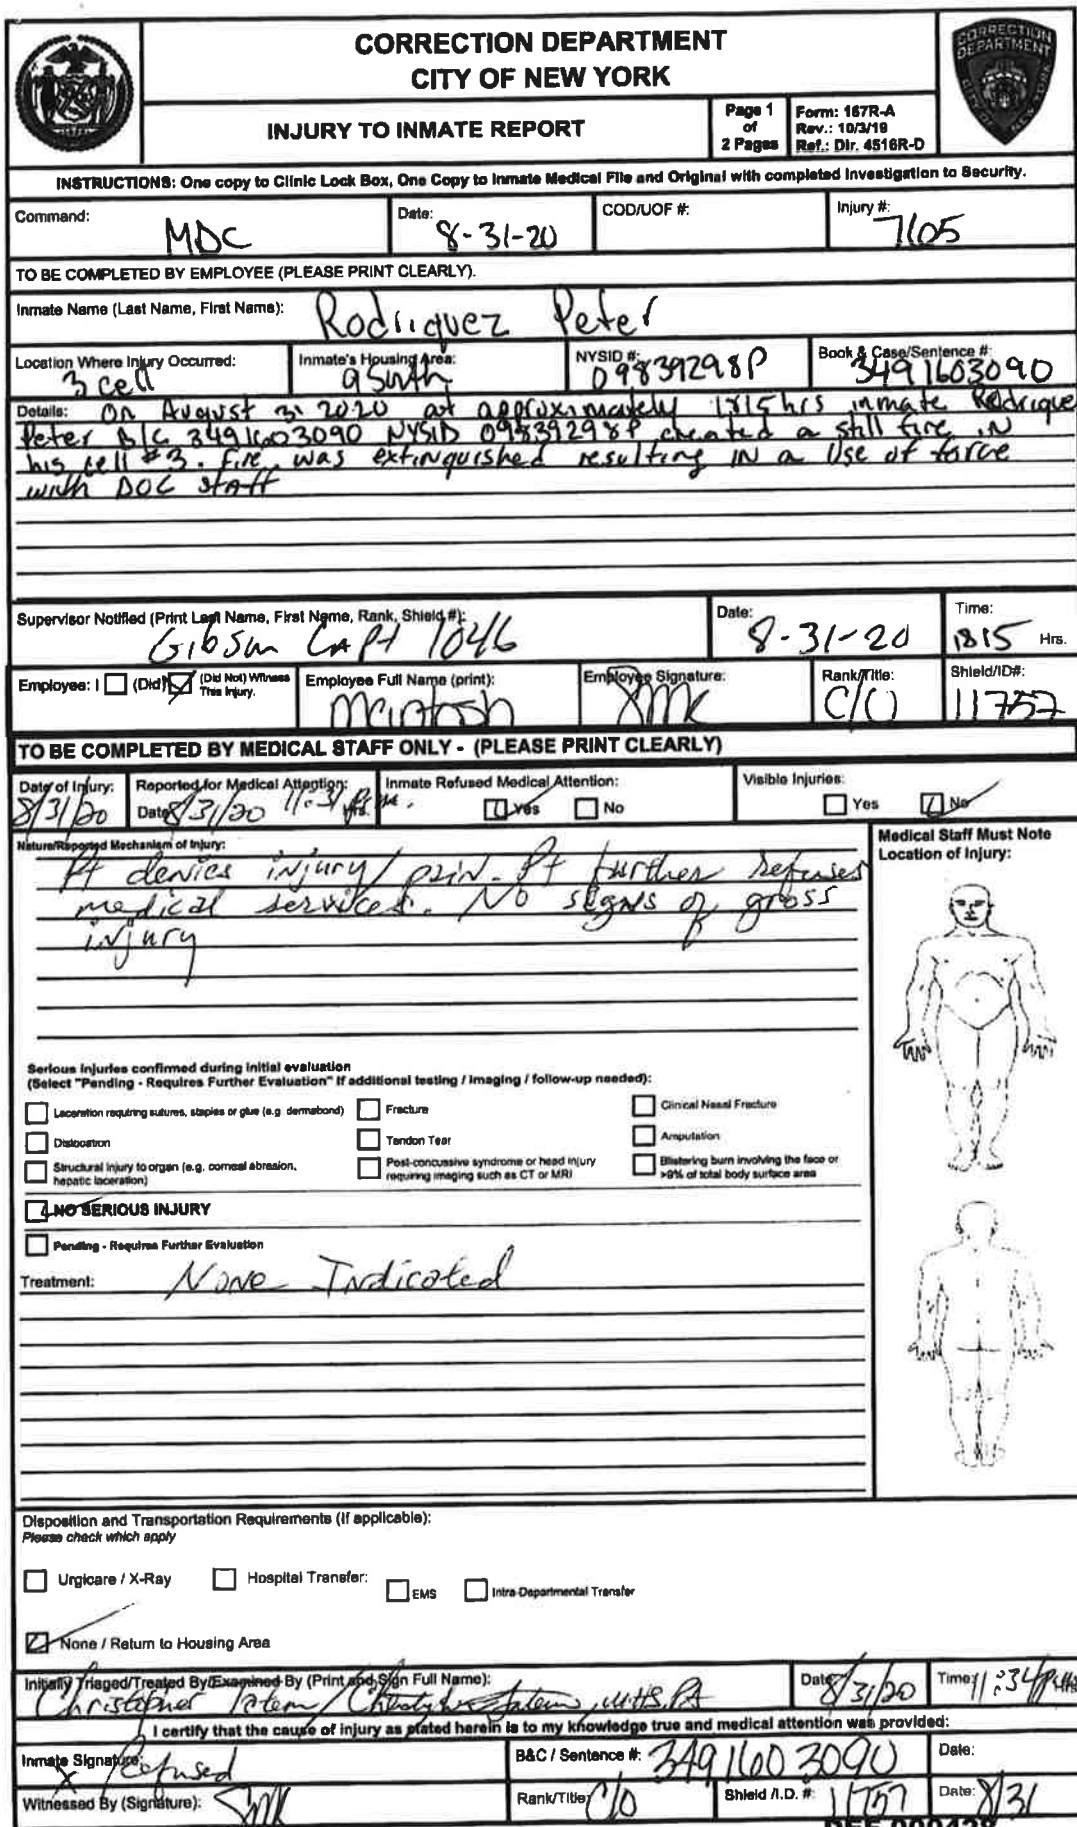 CORRECTION DEPARTMENT
CITY OF NEW YORK
CORRECTION DEPARTMENT
CITY OF NEW YORK
INJURY TO INMATE REPORT
Page 1 of 2 Pages
Form: 167R-A
Rev.: 10/3/19
Ref.: Dir. 4516R-D
INSTRUCTIONS: One copy to Clinic Lock Box, One Copy to Inmate Medical File and Original with completed Investigation to Security.
Command: MDC Date: 8-31-20 COD/UOF #: Injury #: 7105
TO BE COMPLETED BY EMPLOYEE (PLEASE PRINT CLEARLY).
Inmate Name (Last Name, First Name): Rodriquez Peter
Location Where Injury Occurred: 3 cell Inmate's Housing Area: 9 South NYSID #: 09839298P Book & Case/Sentence #: 3491603090
Details: On August 31 2020 at approximately 1815hrs inmate Rodrique
Peter B/C 3491603090 NYSID 09839298P created a still fire IN
his cell #3. Fire was extinquished resulting IN a Use of force
with DOC staff
Supervisor Notified (Print Last Name, First Name, Rank, Shield #): Gibson CAPt 1046 Date: 8-31-20 Time: 1815 Hrs.
Employee: I (Did) (Did Not) Witness This Injury. Employee Full Name (print): McIntosh Employee Signature: Rank/Title: C/O Shield/ID#: 11757
TO BE COMPLETED BY MEDICAL STAFF ONLY - (PLEASE PRINT CLEARLY)
Date of Injury: 8/31/20 Reported for Medical Attention: Date 8/31/20 11:31 P.m. Hrs. Inmate Refused Medical Attention: Yes No Visible Injuries: Yes No
Nature/Reported Mechanism of Injury:
Medical Staff Must Note
Location of Injury:
Pt denies injury/pain. Pt further refuses
medical services. No signs of gross
injury
Serious injuries confirmed during initial evaluation
(Select "Pending - Requires Further Evaluation" if additional testing / imaging / follow-up needed):
Laceration requiring sutures, staples or glue (e.g. dermabond) Fracture Clinical Nasal Fracture
Dislocation Tendon Tear Amputation
Structural injury to organ (e.g. corneal abrasion, hepatic laceration) Post-concussive syndrome or head injury requiring imaging such as CT or MRI Blistering burn involving the face or >9% of total body surface area
NO SERIOUS INJURY
Pending - Requires Further Evaluation
Treatment: None Indicated
Disposition and Transportation Requirements (If applicable):
Please check which apply
Urgicare / X-Ray Hospital Transfer: EMS Intra-Departmental Transfer
None / Return to Housing Area
Initially Triaged/Treated By/Examined By (Print and Sign Full Name): Date 8/31/20 Time: 11:34 P Hrs
Christopher Tatem
I certify that the cause of injury as stated herein is to my knowledge true and medical attention was provided:
Inmate Signature: X Refused B&C / Sentence #: 3491603090 Date:
Witnessed By (Signature): Rank/Title: C/O Shield /I.D. #: 11757 Date: 8/31